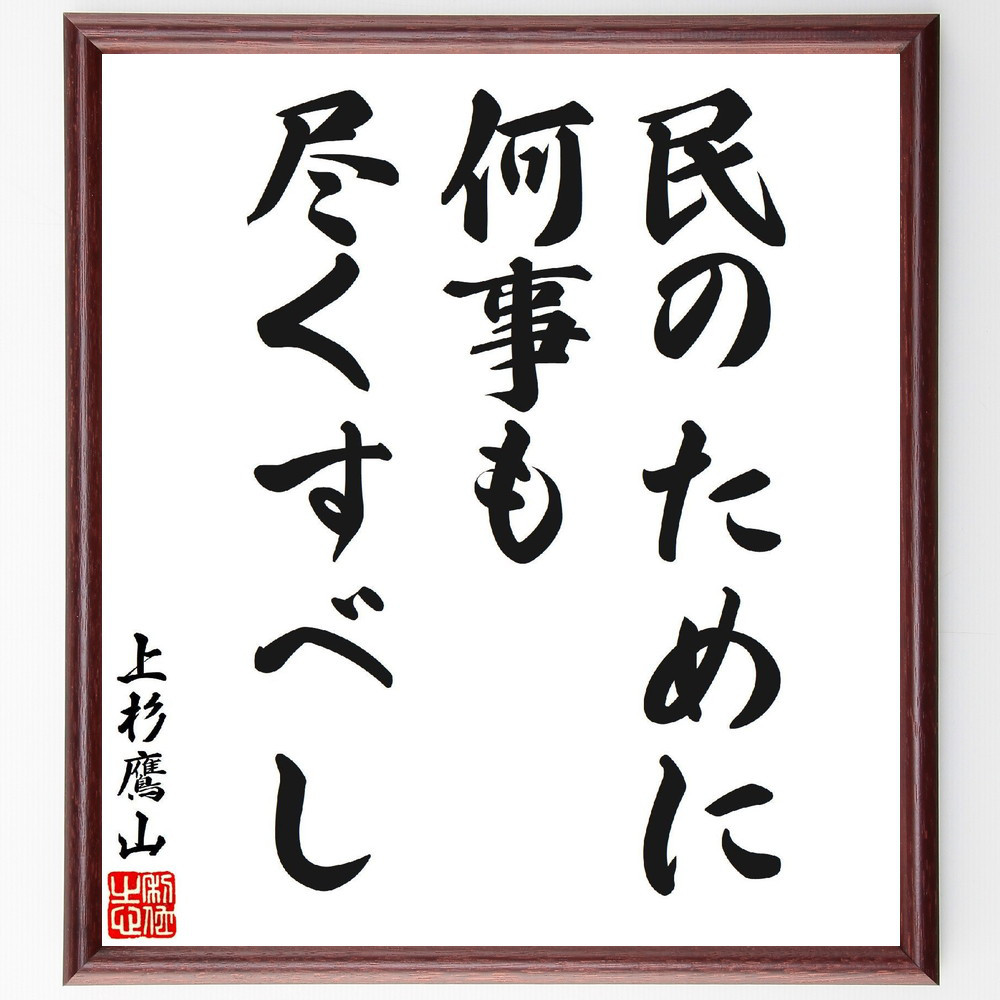 民のために
何事も
尽くすべし
上杉鷹山